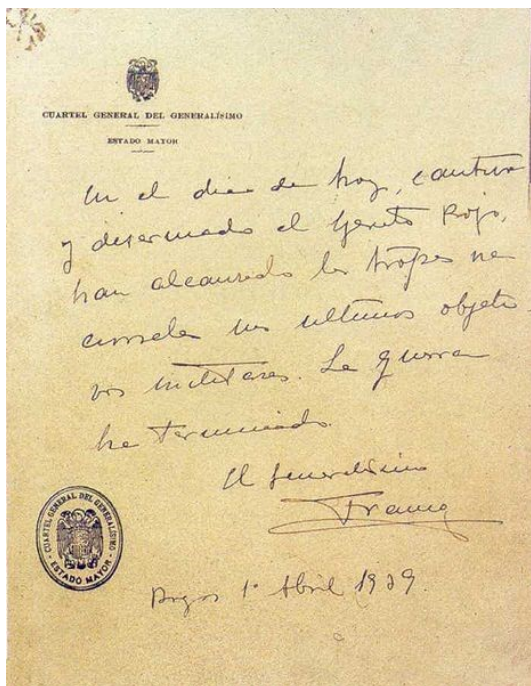 CUARTEL GENERAL DEL GENERALÍSIMO
ESTADO MAYOR
En el dia de hoy, cautivo
y desarmado el Ejercito Rojo,
han alcanzado las tropas na
cionales sus ultimos objeti
vos militares. La guerra
ha terminado.
El Generalisimo
Franco
Burgos 1º Abril 1939.
CUARTEL GENERAL DEL GENERALISIMO
ESTADO MAYOR